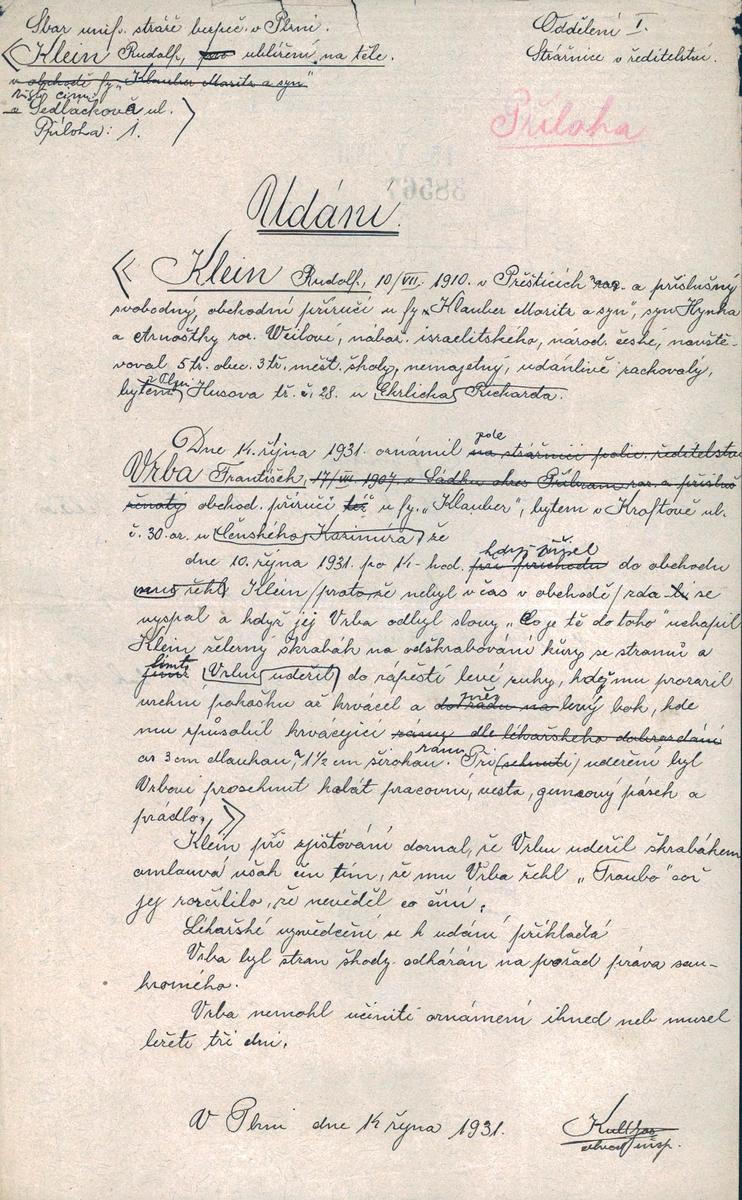 Sbor unif. stráže bezpeč. v Plzni.
Oddělení I.
Klein Rudolf, ublížení na těle.
Strážnice v ředitelství.
v obchodě fy „Klauber Moritz a syn"
Místo činu:
v Sedláčkově ul.
Příloha: 1.
Příloha
38567
Udání.
Klein Rudolf, 10/VII. 1910. v Přešticích nar. a příslušný
svobodný, obchodní příručí u fy „Klauber Moritz a syn", syn Hynka
a Arnoštky roz. Weilové, nábož. israelitského, národ. české, navště-
voval 5 tř. obec. 3 tř. měšť. školy, nemajetný, udánlivě zachovalý,
bytem v Plzni Husova tř. č. 28. u Ehrlicha Richarda.
Dne 14. října 1931. oznámil zde na strážnici polic. ředitelství
Vrba František, 17/VII 1907, v Sádku okres Příbram nar. a přísluš
ženatý obchod. příručí též u fy. „Klauber", bytem v Kraftově ul.
č. 30. u Čenského Kazimíra, že
dne 10. října 1931. po 14 hod. když přišel při příchodu do obchodu
mu řekl Klein / proto že nebyl v čas v obchodě / zda li se
vyspal a když jej Vrba odbyl slovy „Co je tě do toho" uchopil
Klein železný škrabák na odškrabování kůry se stromů a
tímto Vrbu udeřil do zápěstí levé ruky, kdež mu prorazil
vrchní pokožku až krvácel a do zádu na levý bok, kde
mu způsobil krvácející ránu dle lékařského dobrozdání
as 3 cm dlouhou, a 1½ cm širokou ránu. Při (seknutí) udeření byl
Vrbovi proseknut kabát pracovní, vesta, gumový pásek a
prádlo.
Klein při zjišťování doznal, že Vrbu udeřil škrabákem
omlouvá však čin tím, že mu Vrba řekl „Troubo" což
jej rozčílilo, že nevěděl co činí.
Lékařské vysvědčení se k udání přikládá
Vrba byl stran škody odkázán na pořad práva sou-
kromého.
Vrba nemohl učiniti oznámení ihned neb musel
ležeti tři dni.
V Plzni dne 14 října 1931.
insp.